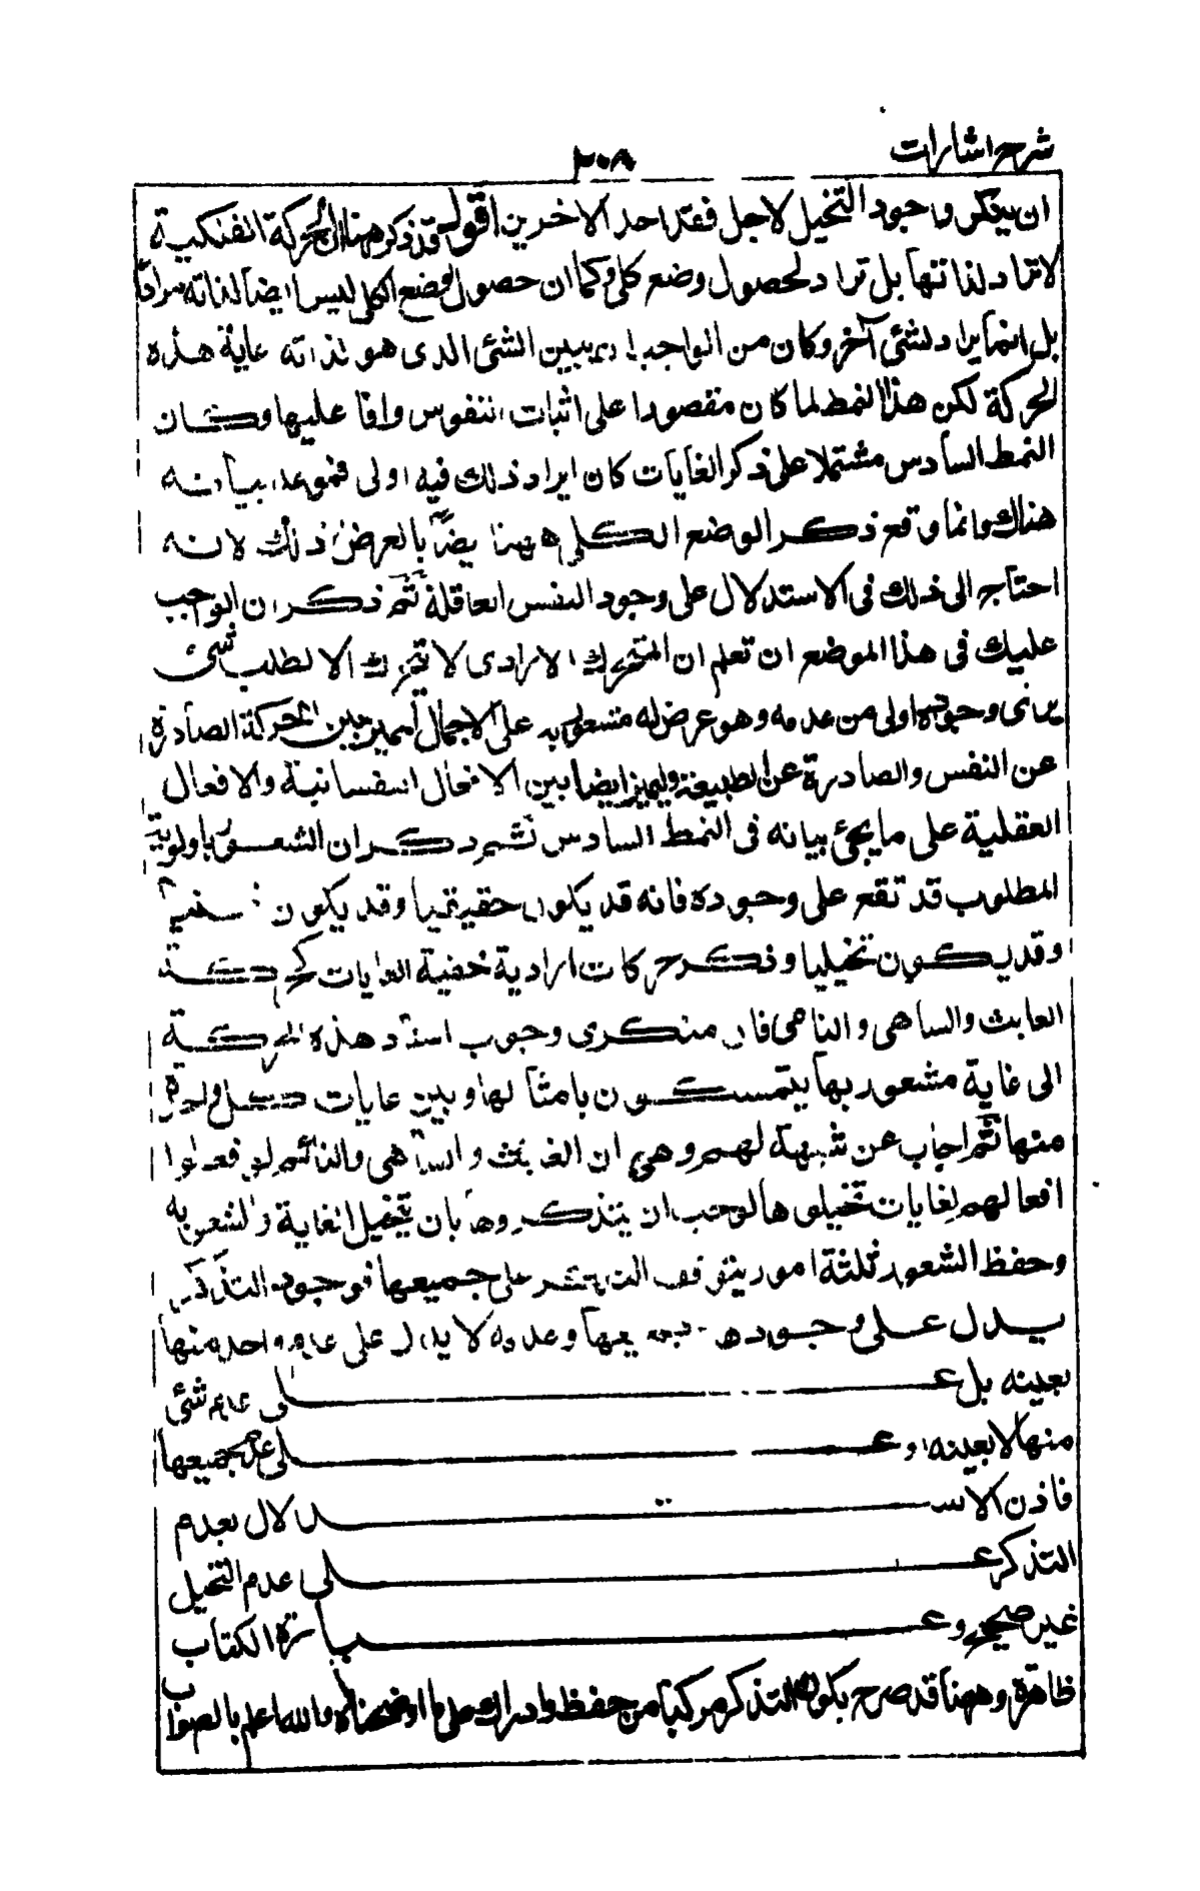 شرح اشارات
٢٠٨
ان ينكر وجود التخيل لاجل فقد احد الاخرين اقول قد ذكر هنا ان الحركة الفلكية
لا تراد لذاتها بل تراد لحصول وضع كلى وكما ان حصول الوضع الكلى ليس ايضا لذاته مرادا
بل انما يراد لشئ آخر وكان من الواجب ان يبين الشئ الذى هو لذاته غاية هذه
الحركة لكن هذا النمط لما كان مقصودا على اثبات النفوس وافا عليها وكان
النمط السادس مشتملا على ذكر الغايات كان ايراد ذلك فيه اولى فهو عد ببيانه
هناك وانما وقع ذكر الوضع الكلى ههنا ايضا بالعرض ذلك لانه
احتاج الى ذلك فى الاستدلال على وجود النفس العاقلة ثم ذكر ان الواجب
عليك فى هذا الموضع ان تعلم ان المتحرك الارادى لا يتحرك الا لطلب شئ
يرى وجوده اولى من عدمه وهو غرض له مشعور به على الاجمال ليميز بين الحركة الصادرة
عن النفس والصادرة عن الطبيعة وليميز ايضا بين الافعال النفسانية والافعال
العقلية على ما يجئ بيانه فى النمط السادس ثم ذكر ان الشعور باولوية
المطلوب قد تقع على وجوده فانه قد يكون حقيقيا وقد يكون ظنيا
وقد يكون تخيليا وذكر حركات ارادية خفية الغايات كحركة
العابث والساهى والنائم فان منكرى وجوب اسناد هذه الحركة
الى غاية مشعور بها يتمسكون بامثالها وبين غايات كل واحدة
منها ثم اجاب عن شبهة لهم وهى ان العابث والساهى والنائم لو فعلوا
افعالهم لغايات تخيلوها لوجب ان يتذكروها بان تخيل الغاية والشعور به
وحفظ الشعور ثلثة امور يتوقف التذكر على جميعها فوجود التذكر
يدل على وجود جميعها وعدمه لا يدل على عدم واحد منها
بعينه بل على عدم شئ
منها لا بعينه او على عدم جميعها
فاذن الاستدلال بعدم
التذكر على عدم التخيل
غير صحيح وعبارة الكتاب
ظاهرة وههنا قد صرح بكون التذكر مركبا من حفظ وادراك على ما اوضحناه والله اعلم بالصواب